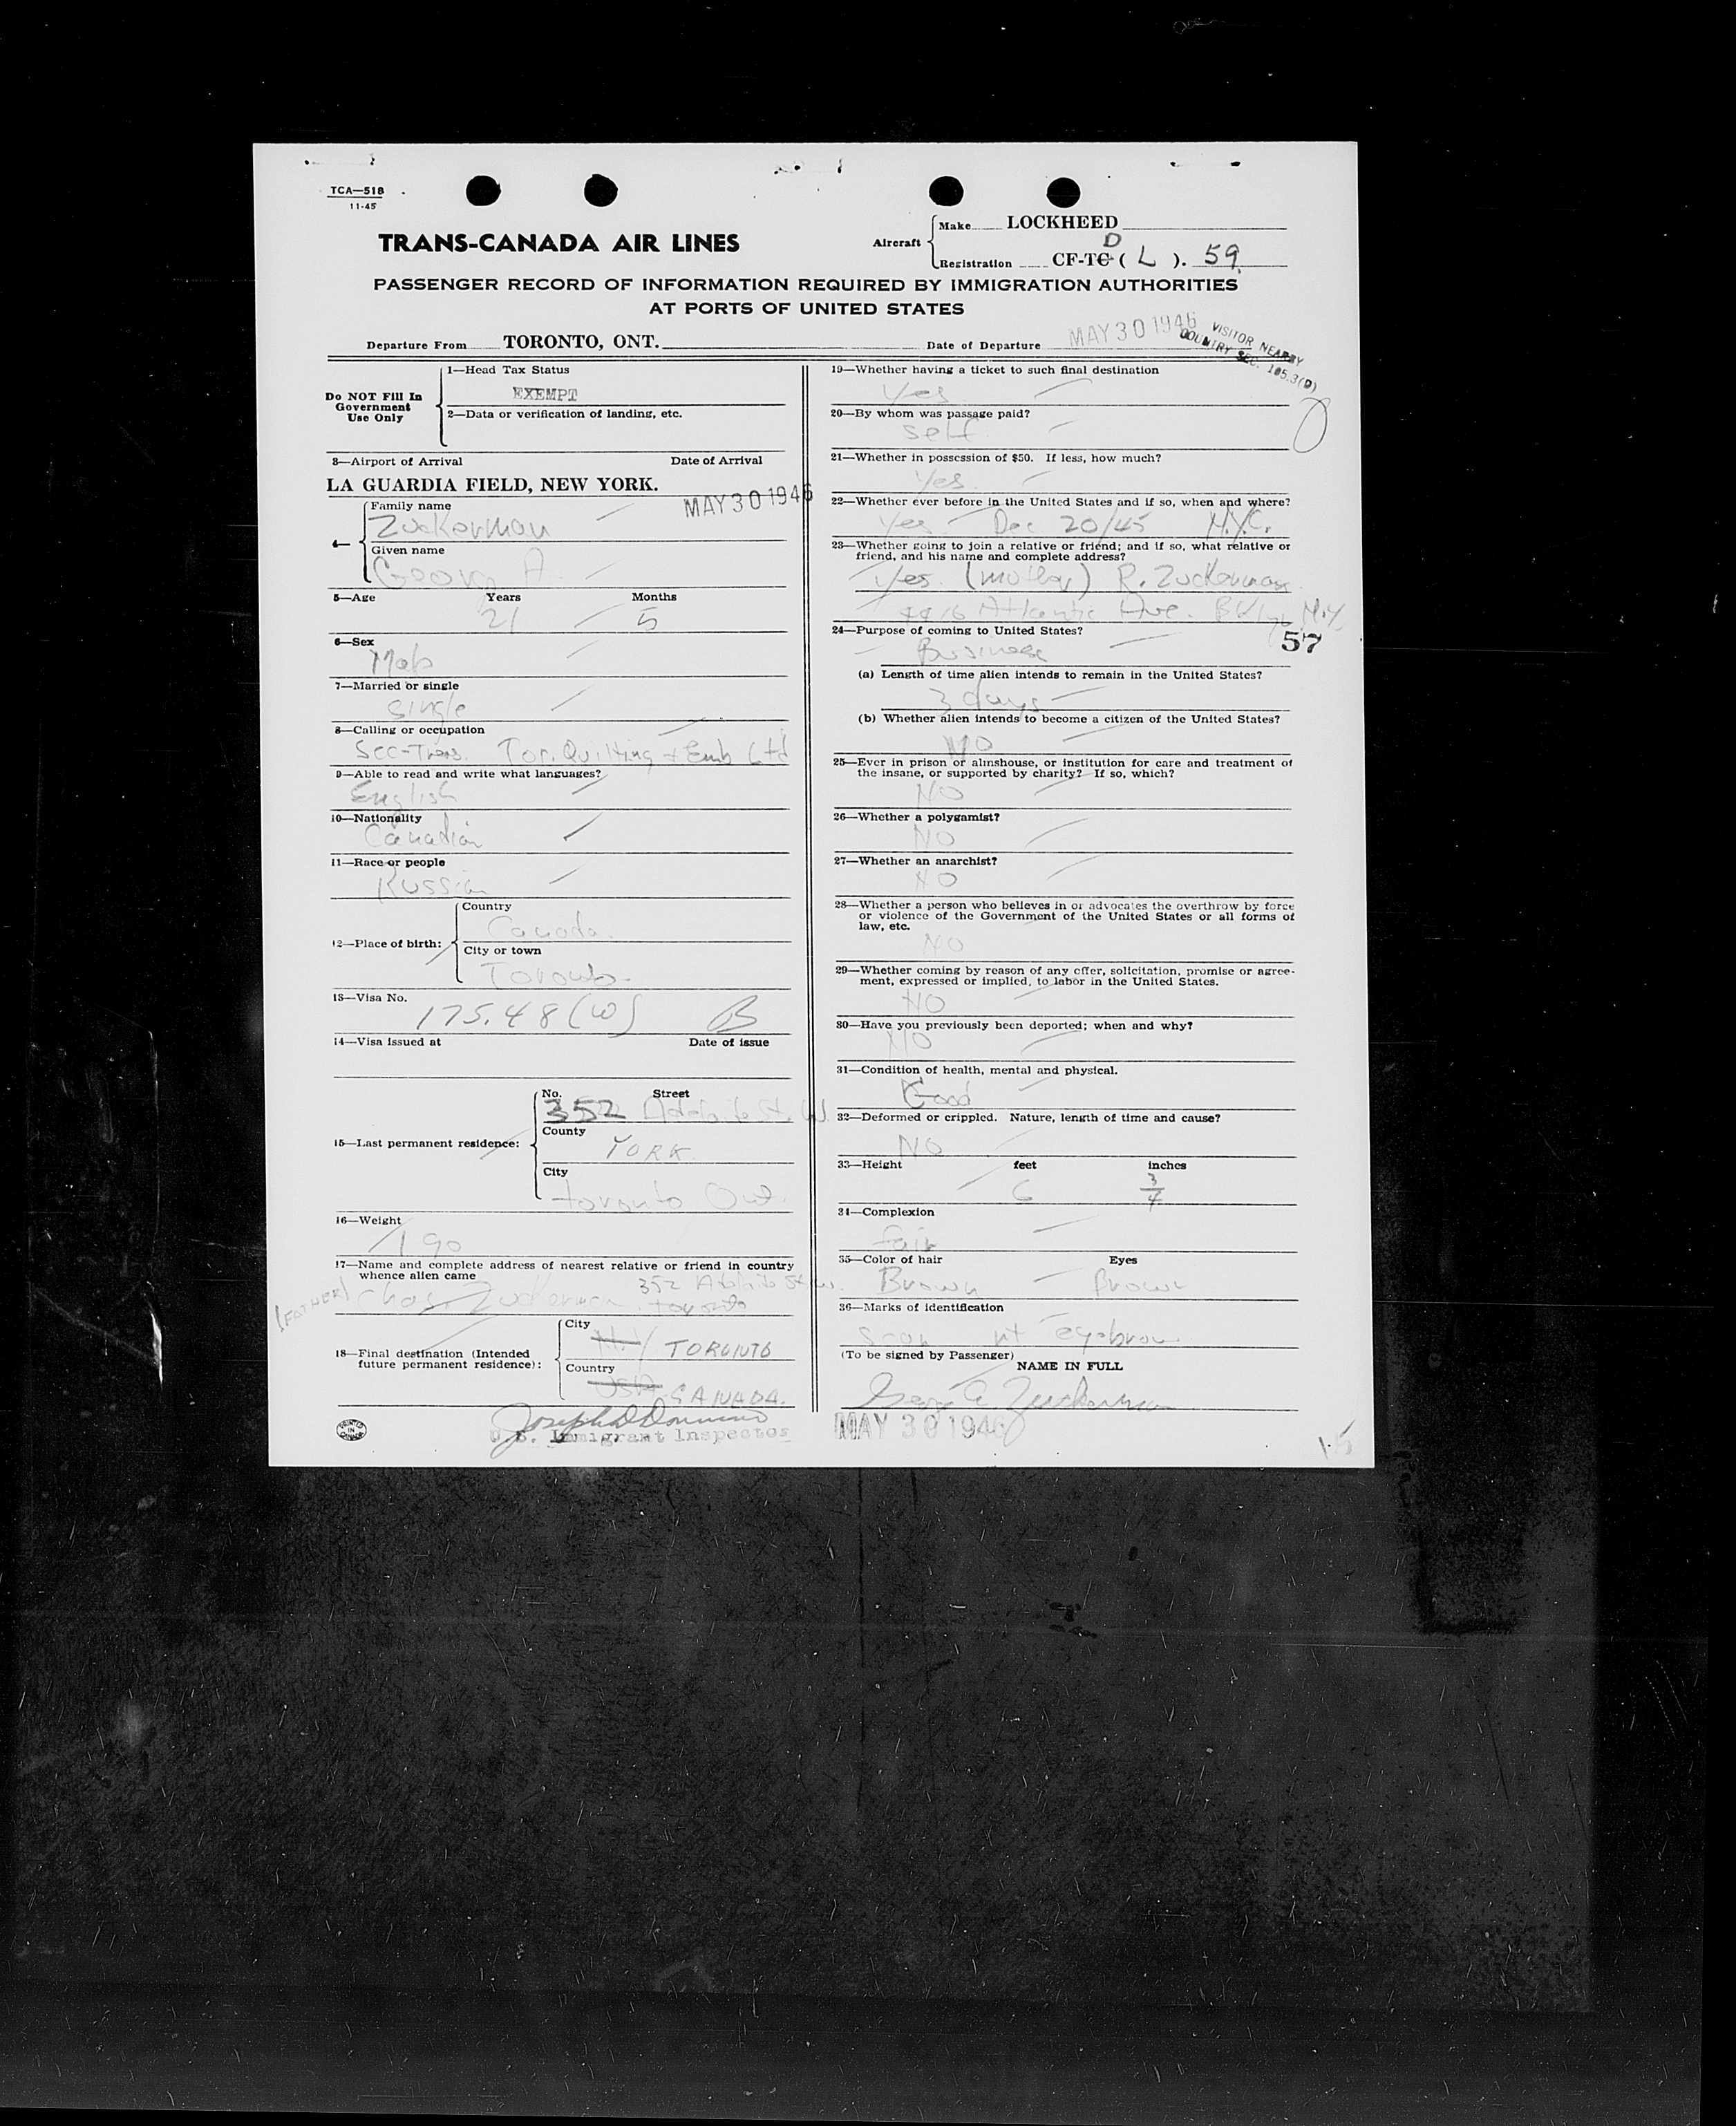 TCA—518
11-45
TRANS-CANADA AIR LINES
Aircraft
Make LOCKHEED
D
Registration CF-TC ( L ). 59
PASSENGER RECORD OF INFORMATION REQUIRED BY IMMIGRATION AUTHORITIES
AT PORTS OF UNITED STATES
Departure From TORONTO, ONT. Date of Departure MAY 30 1946
VISITOR NEARBY
COUNTRY SEC. 105.3(D)
Do NOT Fill In
Government
Use Only
1—Head Tax Status
EXEMPT
2—Data or verification of landing, etc.
3—Airport of Arrival Date of Arrival
LA GUARDIA FIELD, NEW YORK. MAY 30 1946
4—
Family name
Zuckerman
Given name
George A.
5—Age Years Months
21 5
6—Sex
Male
7—Married or single
Single
8—Calling or occupation
Sec-Treas. Tor. Quilting & Emb Ltd
9—Able to read and write what languages?
English
10—Nationality
Canadian
11—Race or people
Russian
12—Place of birth:
Country
Canada
City or town
Toronto
13—Visa No.
175.48 (W) B
14—Visa issued at Date of issue
15—Last permanent residence:
No. Street
352 Adelaide St. W.
County
YORK
City
Toronto Ont.
16—Weight
190
17—Name and complete address of nearest relative or friend in country
whence alien came
352 Adelaide St. W.
(FATHER) Chas. Zuckerman Toronto
18—Final destination (Intended
future permanent residence):
City
N.Y TORONTO
Country
USA CANADA.
U.S. Immigrant Inspector
PRINTED IN CANADA
19—Whether having a ticket to such final destination
Yes
20—By whom was passage paid?
Self
21—Whether in possession of $50. If less, how much?
Yes
22—Whether ever before in the United States and if so, when and where?
Yes Dec 20/45 N.Y.C.
23—Whether going to join a relative or friend; and if so, what relative or
friend, and his name and complete address?
Yes. (mother) R. Zuckerman
Atlantic Ave. Bklyn N.Y.
57
24—Purpose of coming to United States?
Business
(a) Length of time alien intends to remain in the United States?
3 days
(b) Whether alien intends to become a citizen of the United States?
NO
25—Ever in prison or almshouse, or institution for care and treatment of
the insane, or supported by charity? If so, which?
NO
26—Whether a polygamist?
NO
27—Whether an anarchist?
NO
28—Whether a person who believes in or advocates the overthrow by force
or violence of the Government of the United States or all forms of
law, etc.
NO
29—Whether coming by reason of any offer, solicitation, promise or agree-
ment, expressed or implied, to labor in the United States.
NO
30—Have you previously been deported; when and why?
NO
31—Condition of health, mental and physical.
Good
32—Deformed or crippled. Nature, length of time and cause?
NO
33—Height feet inches
6 3/4
34—Complexion
fair
35—Color of hair Eyes
Brown Brown
36—Marks of identification
Scar rt eyebrow
(To be signed by Passenger)
NAME IN FULL
George A Zuckerman
MAY 30 1946
15